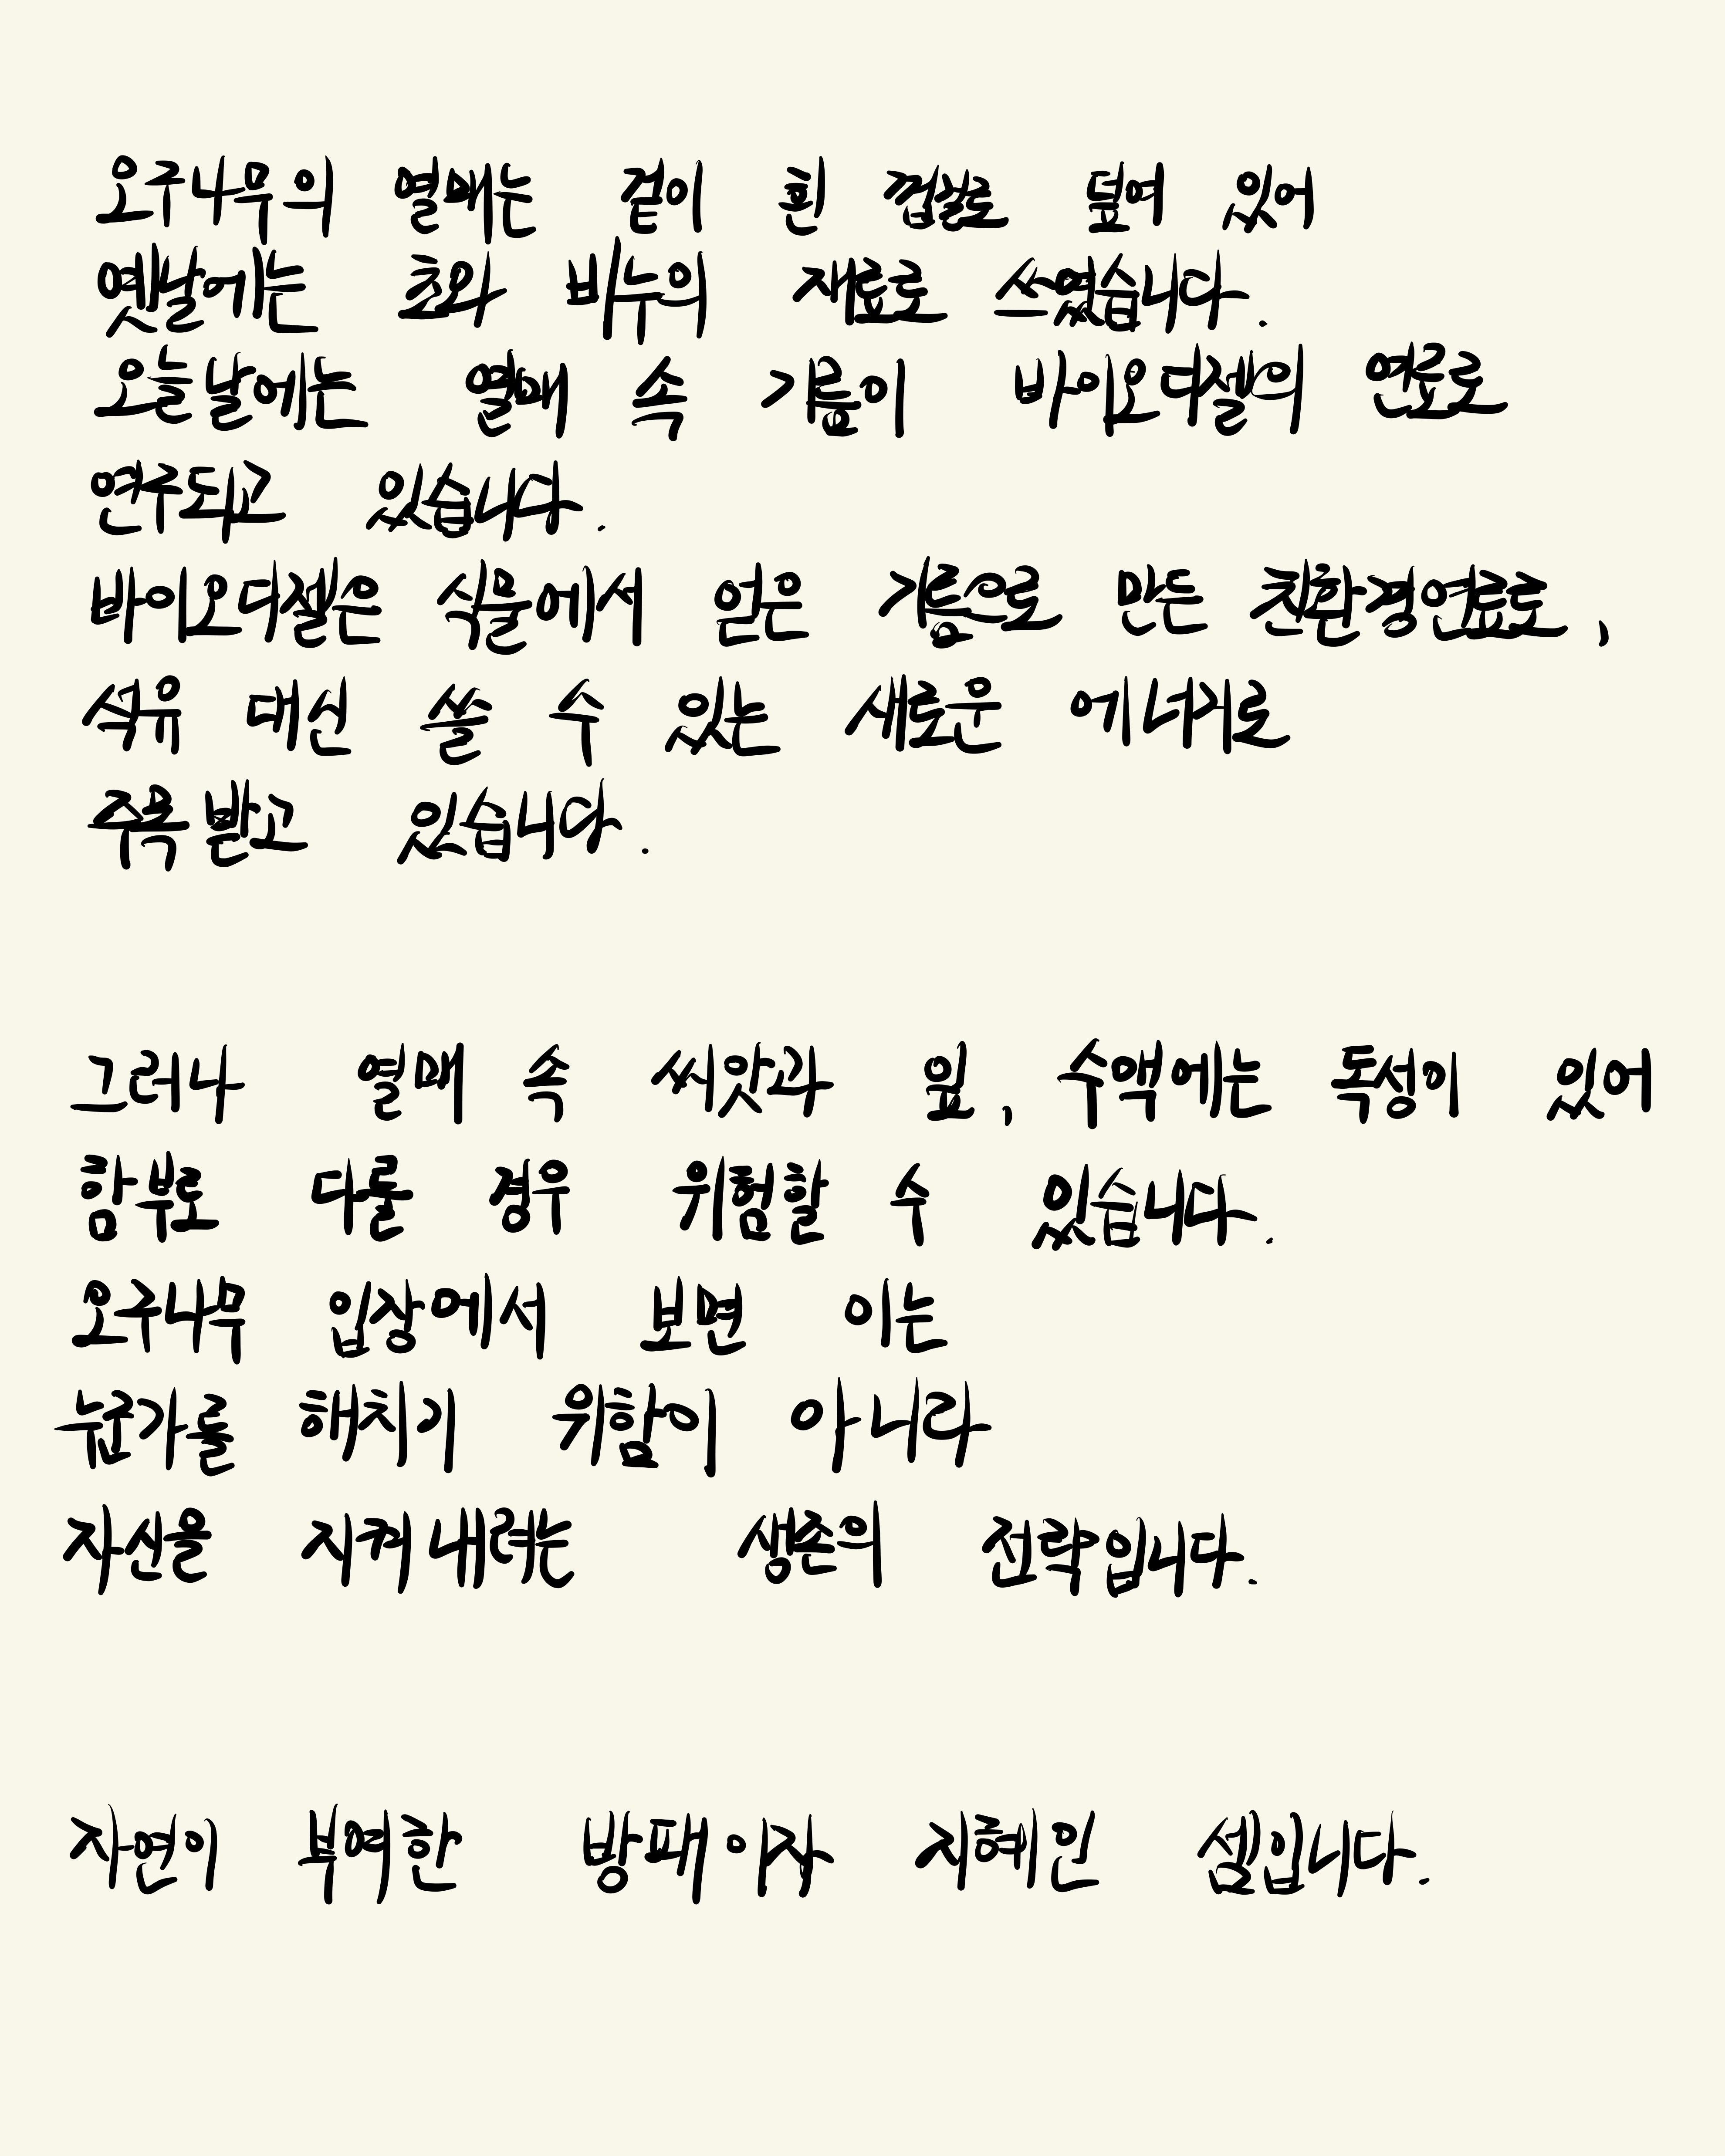 오구나무의 열매는 겉이 흰 껍질로 덮여 있어
옛날에는 초와 비누의 재료로 쓰였습니다.
오늘날에는 열매 속 기름이 바이오디젤의 연료로
연구되고 있습니다.
바이오디젤은 식물에서 얻은 기름으로 만든 친환경연료로,
석유 대신 쓸 수 있는 새로운 에너지로
주목받고 있습니다.
그러나 열매 속 씨앗과 잎, 수액에는 독성이 있어
함부로 다룰 경우 위험할 수 있습니다.
오구나무 입장에서 보면 이는
누군가를 해치기 위함이 아니라
자신을 지켜내려는 생존의 전략입니다.
자연이 부여한 방패이자 지혜인 셈입니다.